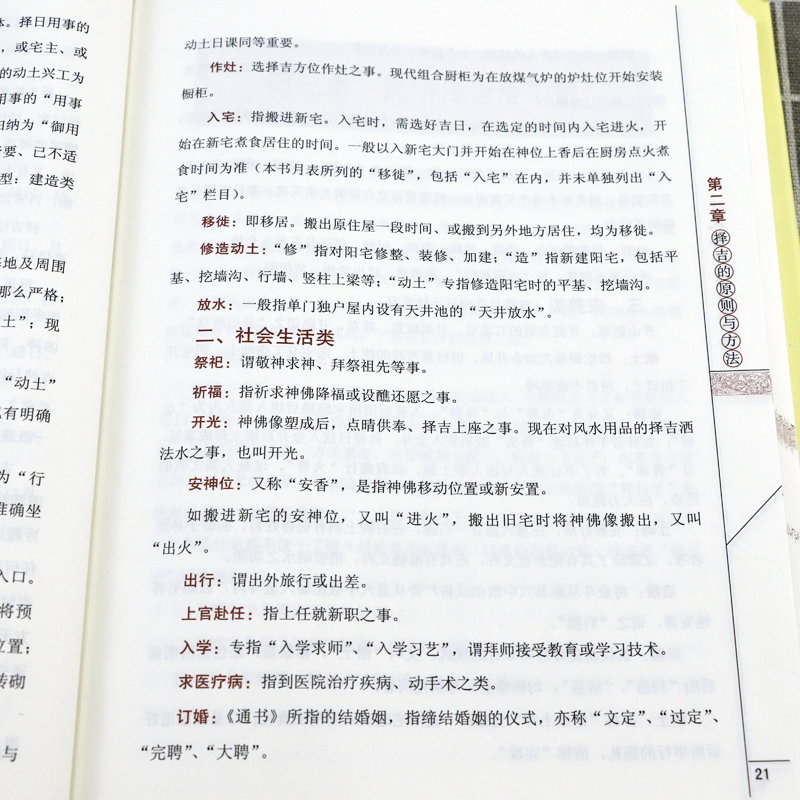 体。择日用事的
，或宅主、或
的动土兴工为
用事的“用事
归纳为“御用
要、已不适
型：建造类
基地及周围
那么严格；
土”；现
“动土”
有明确
为“行
准确坐
入口。
将预
位置；
砖砌
与
动土日课同等重要。
作灶：选择吉方位作灶之事。现代组合厨柜为在放煤气炉的炉灶位开始安装
橱柜。
入宅：指搬进新宅。入宅时，需选好吉日，在选定的时间内入宅进火，开
始在新宅煮食居住的时间。一般以入新宅大门并开始在神位上香后在厨房点火煮
食时间为准（本书月表所列的“移徙”，包括“入宅”在内，并未单独列出“入
宅”栏目）。
移徙：即移居。搬出原住屋一段时间、或搬到另外地方居住，均为移徙。
修造动土：“修”指对阳宅修整、装修、加建；“造”指新建阳宅，包括平
基、挖墙沟、行墙、竖柱上梁等；“动土”专指修造阳宅时的平基、挖墙沟。
放水：一般指单门独户屋内设有天井池的“天井放水”。
二、社会生活类
祭祀：谓敬神求神、拜祭祖先等事。
祈福：指祈求神佛降福或设醮还愿之事。
开光：神佛像塑成后，点睛供奉、择吉上座之事。现在对风水用品的择吉洒
法水之事，也叫开光。
安神位：又称“安香”，是指神佛移动位置或新安置。
如搬进新宅的安神位，又叫“进火”，搬出旧宅时将神佛像搬出，又叫
“出火”。
出行：谓出外旅行或出差。
上官赴任：指上任就新职之事。
入学：专指“入学求师”、“入学习艺”，谓拜师接受教育或学习技术。
求医疗病：指到医院治疗疾病、动手术之类。
订婚：《通书》所指的结婚姻，指缔结婚姻的仪式，亦称“文定”、“过定”、
“完聘”、“大聘”。
第二章 择吉的原则与方法
21